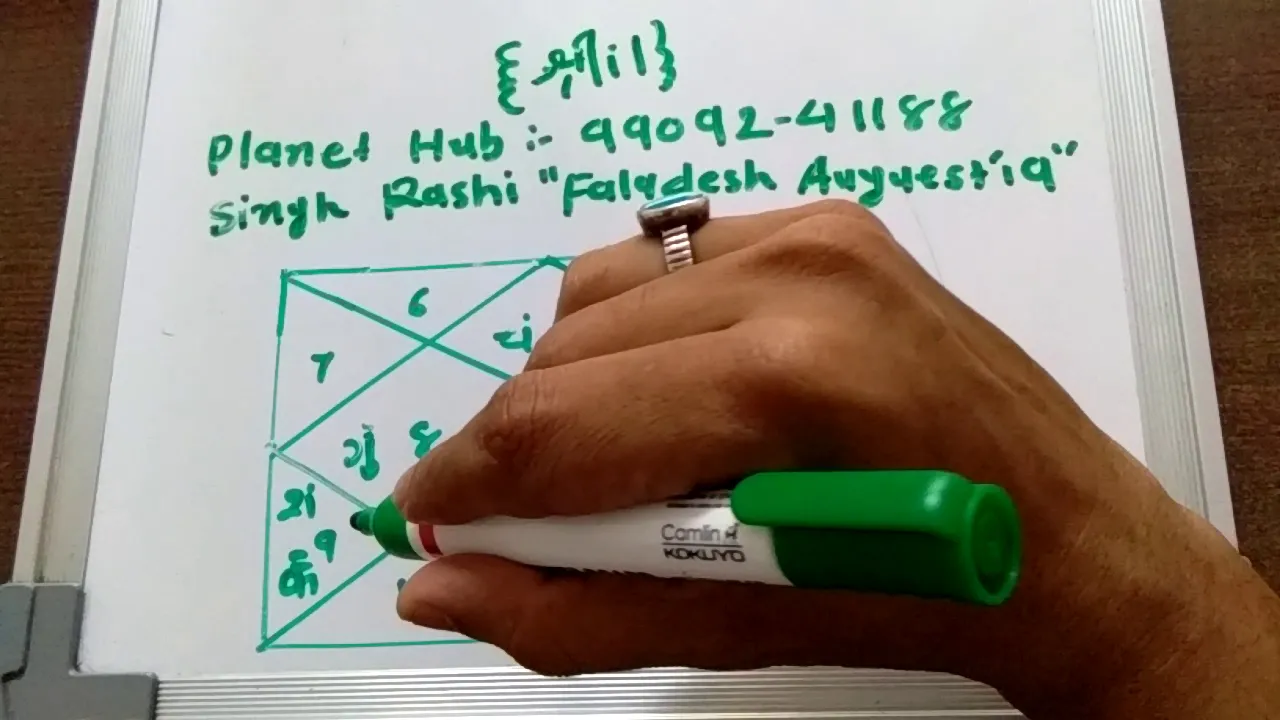 Planet Hub :- 99092-41188
Singh Rashi "Faladesh Auyuest'19"
6
7
8
9
Camlin
KOKUYO